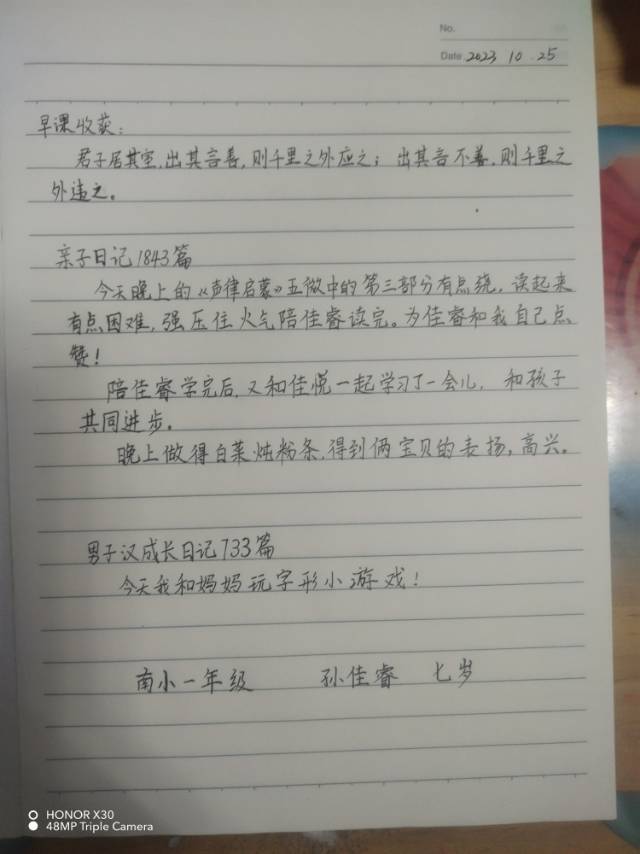 No.
Date 2023 10 25
早课收获：
君子居其室，出其言善，则千里之外应之；出其言不善，则千里之
外违之。
亲子日记1843篇
今天晚上的《声律启蒙》五微中的第三部分有点绕，读起来
有点困难，强压住火气陪佳睿读完。为佳睿和我自己点
赞！
陪佳睿学完后，又和佳悦一起学习了一会儿，和孩子
共同进步。
晚上做得白菜炖粉条，得到俩宝贝的表扬，高兴。
男子汉成长日记733篇
今天我和妈妈玩字形小游戏！
南小一年级 孙佳睿 七岁
HONOR X30
48MP Triple Camera